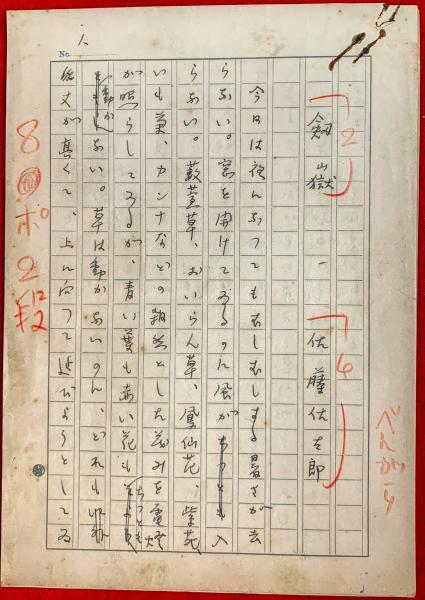 No. 1
劔山嶽 一 佐藤佐太郎
「2」
「4」
べんがら
今日は夜になってもむしむしする暑さが去
らない。窓を開けてゐるのに風がちつとも入
らない。藪萱草、おいらん草、鳳仙花、紫苑
いも蔓、カンナなどの
とした茂みを電燈
が照らしてゐるが、青い葉も赤い花もちつとも
動かない。草は動かないのに、どれも
丈が高くて、上に向つて延びようとしてゐ
8ポ2段